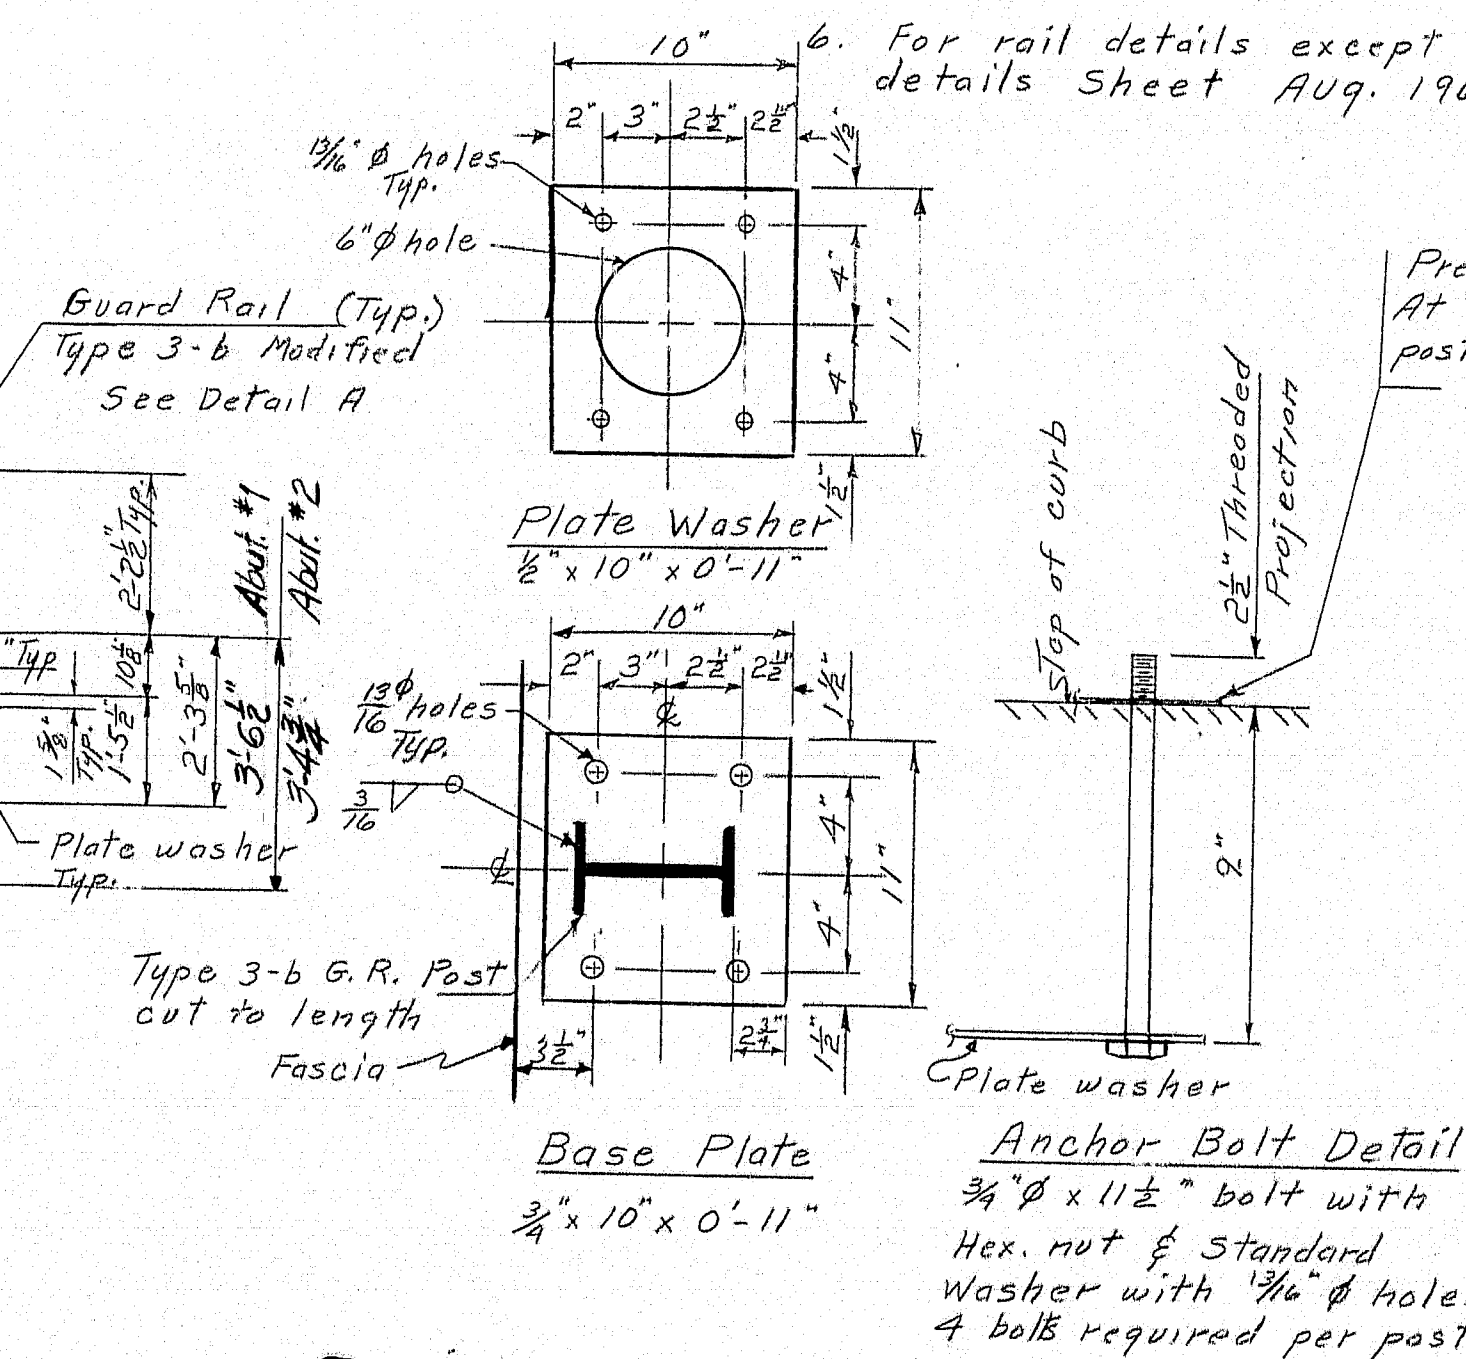 6. For rail details except
details Sheet Aug.
10"
2" 3" 2½" 2½"
1½"
13/16" ø holes
Typ.
6" ø hole
4"
4"
11"
1½"
Plate Washer
½" x 10" x 0'-11"
Guard Rail (Typ.)
Type 3-b Modified
See Detail A
2'-2½" Typ.
Abut. #1
Abut. #2
"Typ
10⅛"
1⅝"
Typ.
1'-5½"
2'-3⅝"
3'-6½"
3'-4¾"
Plate washer
Typ.
10"
2" 3" 2½" 2½"
1½"
13/16 ø
holes
Typ.
℄
3/16
℄
4"
4"
11"
Type 3-b G.R. Post
cut to length
Fascia
3½"
2¾"
1½"
Base Plate
¾" x 10" x 0'-11"
Pre
At
posi
Top of curb
2½" Threaded
Projection
9"
Plate washer
Anchor Bolt Detail
¾" ø x 11½" bolt with
Hex. nut & Standard
Washer with 13/16" ø hole
4 bolts required per post